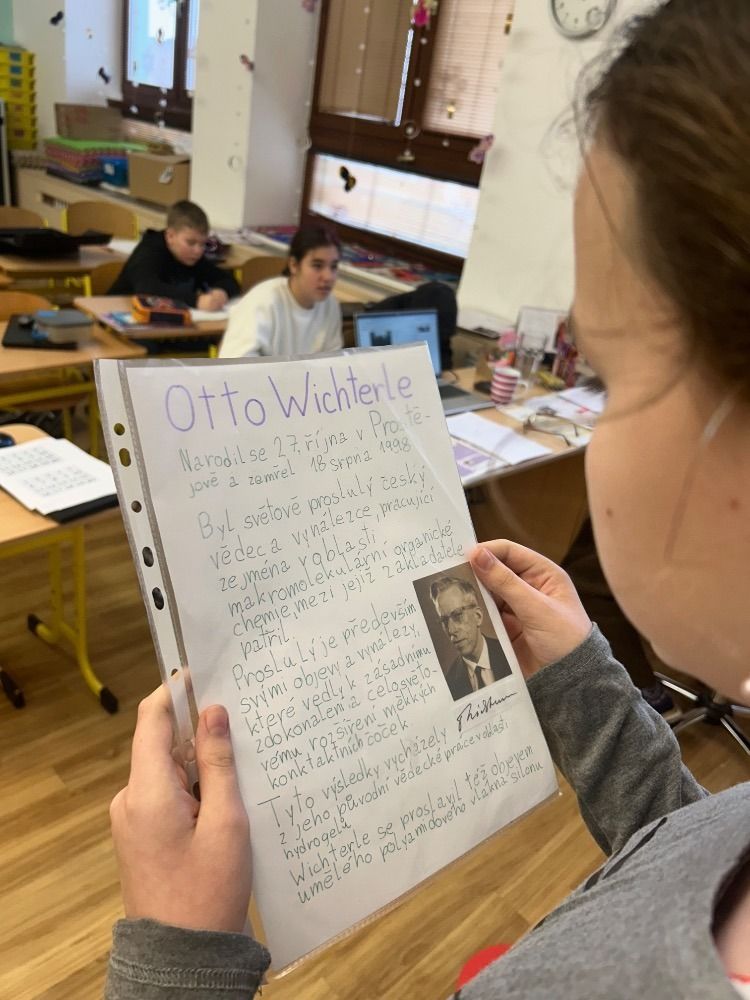 Otto Wichterle
Narodil se 27. října v Prostě-
jově a zemřel 18 srpna 1998.
Byl světově proslulý český
vědec a vynálezce, pracující
zejména v oblasti
makromolekulární organické
chemie, mezi jejíž zakladatele
patřil.
Proslulý je především
svými objevy a vynálezy,
které vedly k zásadnímu
zdokonalení a celosvěto-
vému rozšíření měkkých
konktaktních čoček.
Tyto výsledky vycházely
z jeho původní vědecké práce v oblasti
hydrogelů
Wichterle se proslavil též objevem
umělého polyamidového vlákna silonu